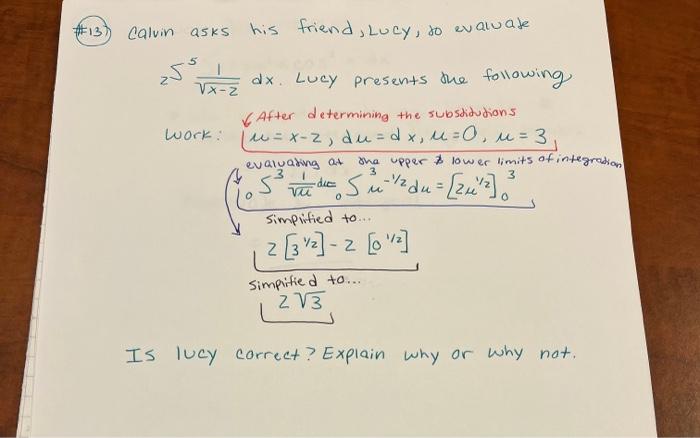 #13) Calvin asks his friend, Lucy, to evaluate
₂∫⁵ 1/√x-2 dx. Lucy presents the following
After determining the substidutions
Work: u = x-2, du = dx, u = 0, u = 3
evaluating at the upper & lower limits of integration
₀∫³ 1/√u du = ₀∫³ u^-1/2 du = [2u^1/2]₀³
Simplified to...
2[3^1/2] - 2[0^1/2]
Simplified to...
2√3
Is lucy correct? Explain why or why not.